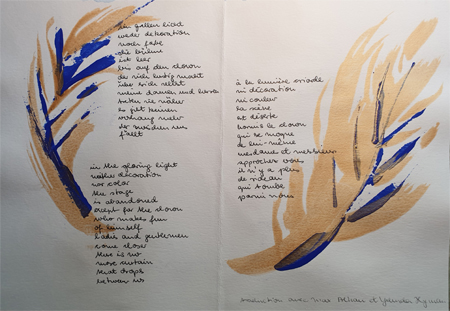 im gellen licht
weder dekoration
noch farbe
die bühne
ist leer
bis auf den clown
der sich lustig macht
über sich selbst
meine damen und herren
treten sie näher
es gibt keinen
vorhang mehr
der zwischen uns
fällt
in the glaring light
neither decoration
nor color
the stage
is abandoned
except for the clown
who makes fun
of himself
ladies and gentlemen
come closer
there is no
more curtain
that drops
between us
à la lumière
ni décoration
ni couleur
la scène
est déserte
hormis le clown
qui se moque
de lui-même
mesdames et messieurs
approchez vous
il n'y a plus
de rideau
qui tombe
parmi nous
traduction avec et